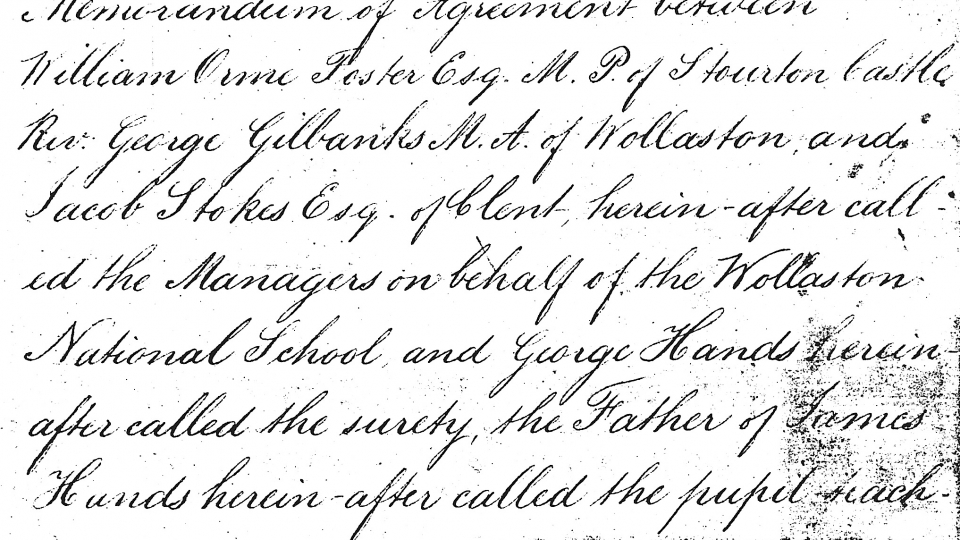 Memorandum of Agreement between
William Orme Foster Esq. M. P. of Stourton Castle,
Rev. George Gilbanks M. A. of Wollaston, and
Jacob Stokes Esq. of Clent, herein-after call-
ed the Managers on behalf of the Wollaston
National School, and George Hands herein-
after called the surety, the Father of James
Hands herein-after called the pupil teach-